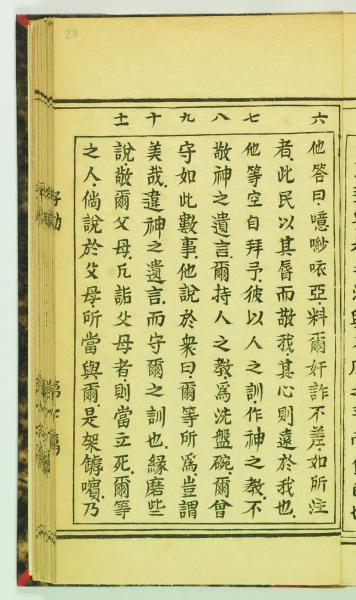 23
六
他答曰、噫㘓咴亞、料爾奸詐不差、如所注
者、此民以其脣而敬我、其心則遠於我也、
七
他等空自拜予、彼以人之訓、作神之教、不
八
敬神之遺言、爾持人之教、爲洗盤碗、爾曾
九
守如此數事、他說於衆曰、爾等所爲、豈謂
十
美哉、違神之遺言、而守爾之訓也、緣磨些
十一
說、敬爾父母、凡詬父母者則當立死、爾等
之人、倘說於父母、所當與爾、是架鎼嚬、乃